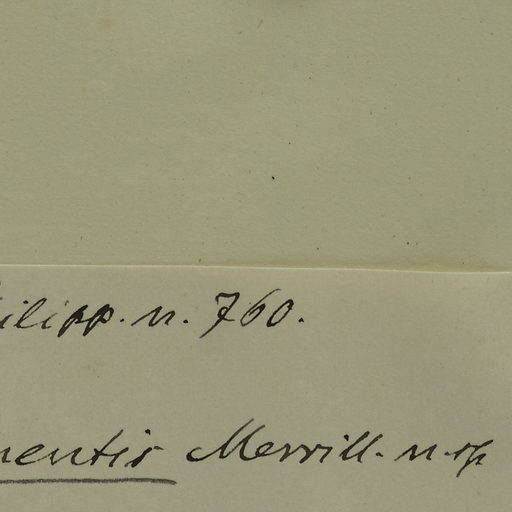 ilipp. n. 760.
nentis Merrill. n. sp